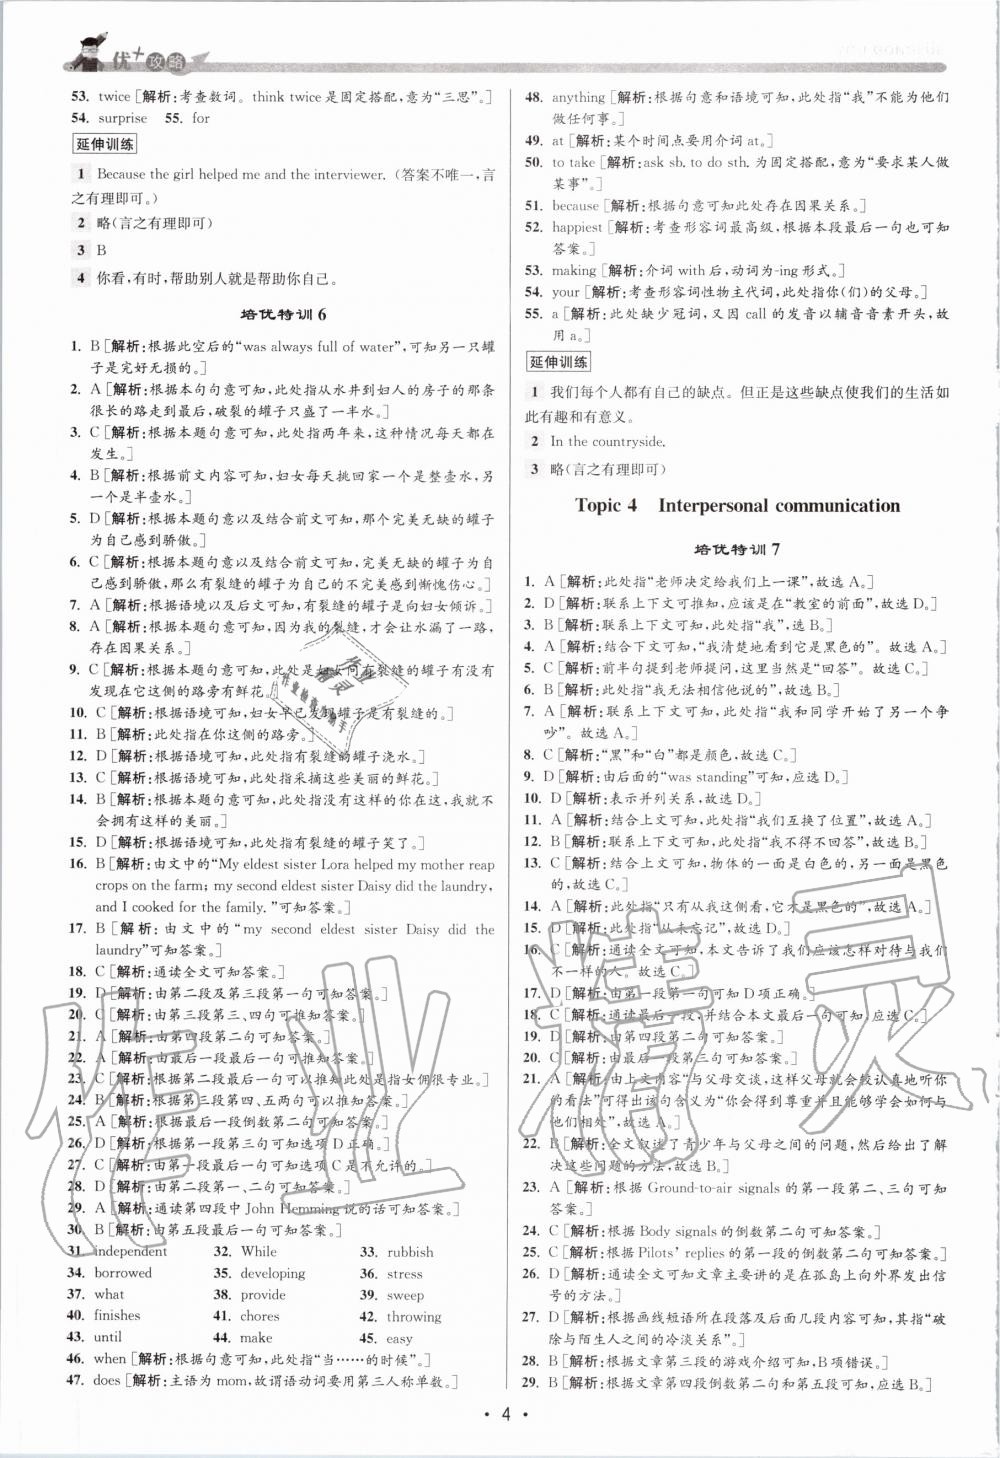 优+攻略
53. twice [解析:考查数词。think twice是固定搭配,意为“三思”。]
54. surprise 55. for
延伸训练
1 Because the girl helped me and the interviewer.(答案不唯一,言
之有理即可。)
2 略(言之有理即可)
3 B
4 你看,有时,帮助别人就是帮助你自己。
培优特训6
1. B [解析:根据此空后的“was always full of water”,可知另一只罐
子是完好无损的。]
2. A [解析:根据本句句意可知,此处指从水井到妇人的房子的那条
很长的路走到最后,破裂的罐子只盛了一半水。]
3. C [解析:根据本题句意可知,此处指两年来,这种情况每天都在
发生。]
4. B [解析:根据前文内容可知,妇女每天挑回家一个是整壶水,另
一个是半壶水。]
5. D [解析:根据本题句意以及结合前文可知,那个完美无缺的罐子
为自己感到骄傲。]
6. C [解析:根据本题句意可以及结合前文可知,完美无缺的罐子为
自己感到骄傲,那么有裂缝的罐子会为自己的不完美感到惭愧伤心。]
7. A [解析:根据语境以及后文可知,有裂缝的罐子是向妇女倾诉。]
8. A [解析:根据本题句意可知,因为我的裂缝,才会让水漏了一路,
存在因果关系。]
9. C [解析:根据本题句意可知,此处是妇女问有裂缝的罐子有没有
发现在它这侧的路旁有鲜花。]
10. C [解析:根据语境可知,妇女早已发现罐子是有裂缝的。]
11. B [解析:此处指在你这侧的路旁。]
12. D [解析:根据语境可知,此处指给有裂缝的罐子浇水。]
13. C [解析:根据语境可知,此处指采摘这些美丽的鲜花。]
14. B [解析:根据本题句意可知,此处指没有这样的你在这,我就不
会拥有这样的美丽。]
15. D [解析:根据语境可知,此处指有裂缝的罐子笑了。]
16. B [解析:由文中的“My eldest sister Lora helped my mother reap
crops on the farm; my second eldest sister Daisy did the laundry,
and I cooked for the family.”可知答案。]
17. B [解析:由文中的“my second eldest sister Daisy did the
laundry”可知答案。]
18. C [解析:通读全文可知答案。]
19. D [解析:由第二段及第三段第一句可知答案。]
20. C [解析:由第三段第三、四句可推知答案。]
21. A [解析:由第四段第二句可知答案。]
22. A [解析:由最后一段最后一句可知答案。]
23. C [解析:根据第二段最后一句可以推知此处是指女佣很专业。]
24. B [解析:根据第三段第四、五两句可以推知答案。]
25. A [解析:根据最后一段倒数第二句可知答案。]
26. D [解析:根据第一段第三句可知选项D正确。]
27. C [解析:由第一段最后一句可知选项C是不允许的。]
28. D [解析:由第二段第一、二句可知答案。]
29. A [解析:通读第四段中John Hemming说的话可知答案。]
30. B [解析:由第五段最后一句可知答案。]
31. independent 32. While 33. rubbish
34. borrowed 35. developing 36. stress
37. what 38. provide 39. sweep
40. finishes 41. chores 42. throwing
43. until 44. make 45. easy
46. when [解析:根据句意可知,此处指“当……的时候”。]
47. does [解析:主语为mom,故谓语动词要用第三人称单数。]
48. anything [解析:根据句意和语境可知,此处指“我”不能为他们
做任何事。]
49. at [解析:某个时间点要用介词at。]
50. to take [解析:ask sb. to do sth. 为固定搭配,意为“要求某人做
某事”。]
51. because [解析:根据句意可知此处存在因果关系。]
52. happiest [解析:考查形容词最高级,根据本段最后一句也可知
答案。]
53. making [解析:介词with后,动词为-ing形式。]
54. your [解析:考查形容词性物主代词,此处指你(们)的父母。]
55. a [解析:此处缺少冠词,又因call的发音以辅音音素开头,故
用a。]
延伸训练
1 我们每个人都有自己的缺点。但正是这些缺点使我们的生活如
此有趣和有意义。
2 In the countryside.
3 略(言之有理即可)
Topic 4 Interpersonal communication
培优特训7
1. A [解析:此处指“老师决定给我们上一课”,故选A。]
2. D [解析:联系上下文可推知,应该是在“教室的前面”,故选D。]
3. B [解析:联系上下文可知,此处指“我”,选B。]
4. A [解析:结合下文可知,“我清楚地看到它是黑色的”。故选A。]
5. C [解析:前半句提到老师提问,这里当然是“回答”。故选C。]
6. B [解析:此处指“我无法相信他说的”,故选B。]
7. A [解析:联系上下文可知,此处指“我和同学开始了另一个争
吵”。故选A。]
8. C [解析:“黑”和“白”都是颜色,故选C。]
9. D [解析:由后面的“was standing”可知,应选D。]
10. D [解析:表示并列关系,故选D。]
11. A [解析:结合上文可知,此处指“我们互换了位置”,故选A。]
12. B [解析:联系上下文可知,此处指“我不得不回答”,故选B。]
13. C [解析:结合上文可知,物体的一面是白色的,另一面是黑色
的,故选C。]
14. A [解析:此处指“只有从我这侧看,它才是黑色的”,故选A。]
15. D [解析:此处指“从未忘记”,故选D。]
16. C [解析:通读全文可知,本文告诉了我们应该怎样对待与我们
不一样的人。故选C。]
17. D [解析:由第一段第一句可知D项正确。]
18. C [解析:通读最后一段,并结合本文最后一句可知,应选C。]
19. D [解析:由第四段第二句可知答案。]
20. C [解析:由最后一段第三句可知答案。]
21. A [解析:由上文内容“与父母交谈,这样父母就会较认真地听你
的看法”可得出该句含义为“你会得到尊重并且能够学会如何与
他们相处”,故选A。]
22. B [解析:全文叙述了青少年与父母之间的问题,然后给出了解
决这些问题的方法,故选B。]
23. A [解析:根据Ground-to-air signals的第一段第二、三句可知
答案。]
24. C [解析:根据Body signals的倒数第二句可知答案。]
25. C [解析:根据Pilots’ replies的第一段的倒数第二句可知答案。]
26. D [解析:通读全文可知文章主要讲的是在孤岛上向外界发出信
号的方法。]
27. D [解析:根据画线短语所在段落及后面几段内容可知,其指“破
除与陌生人之间的冷淡关系”。]
28. B [解析:根据文章第三段的游戏介绍可知,B项错误。]
29. B [解析:根据文章第四段倒数第二句和第五段可知,应选B。]
作业精灵
· 4 ·